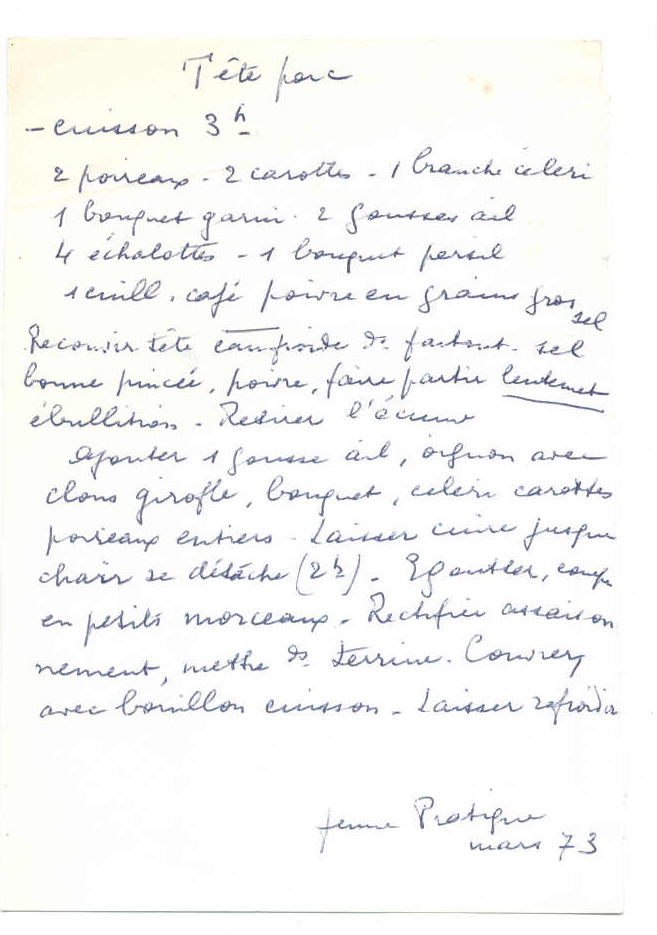 Tête porc
- cuisson 3h
2 poireaux - 2 carottes - 1 branche céleri
1 bouquet garni - 2 gousses ail
4 échalottes - 1 bouquet persil
1 cuill. café poivre en grains gros
sel
Recouvrir tête eau froide ds faitout - sel
bonne pincée, poivre, faire partir lentement
ébullition - Retirer l'écume
Ajouter 1 gousse ail, oignon avec
clous girofle, bouquet, céleri carottes
poireaux entiers - Laisser cuire jusque
chair se détache (2h) - Egoutter, coup
en petits morceaux - Rectifier assaison
nement, mettre ds terrine. Couvrez
avec bouillon cuisson - Laisser refroidir
femme Pratique
mars 73